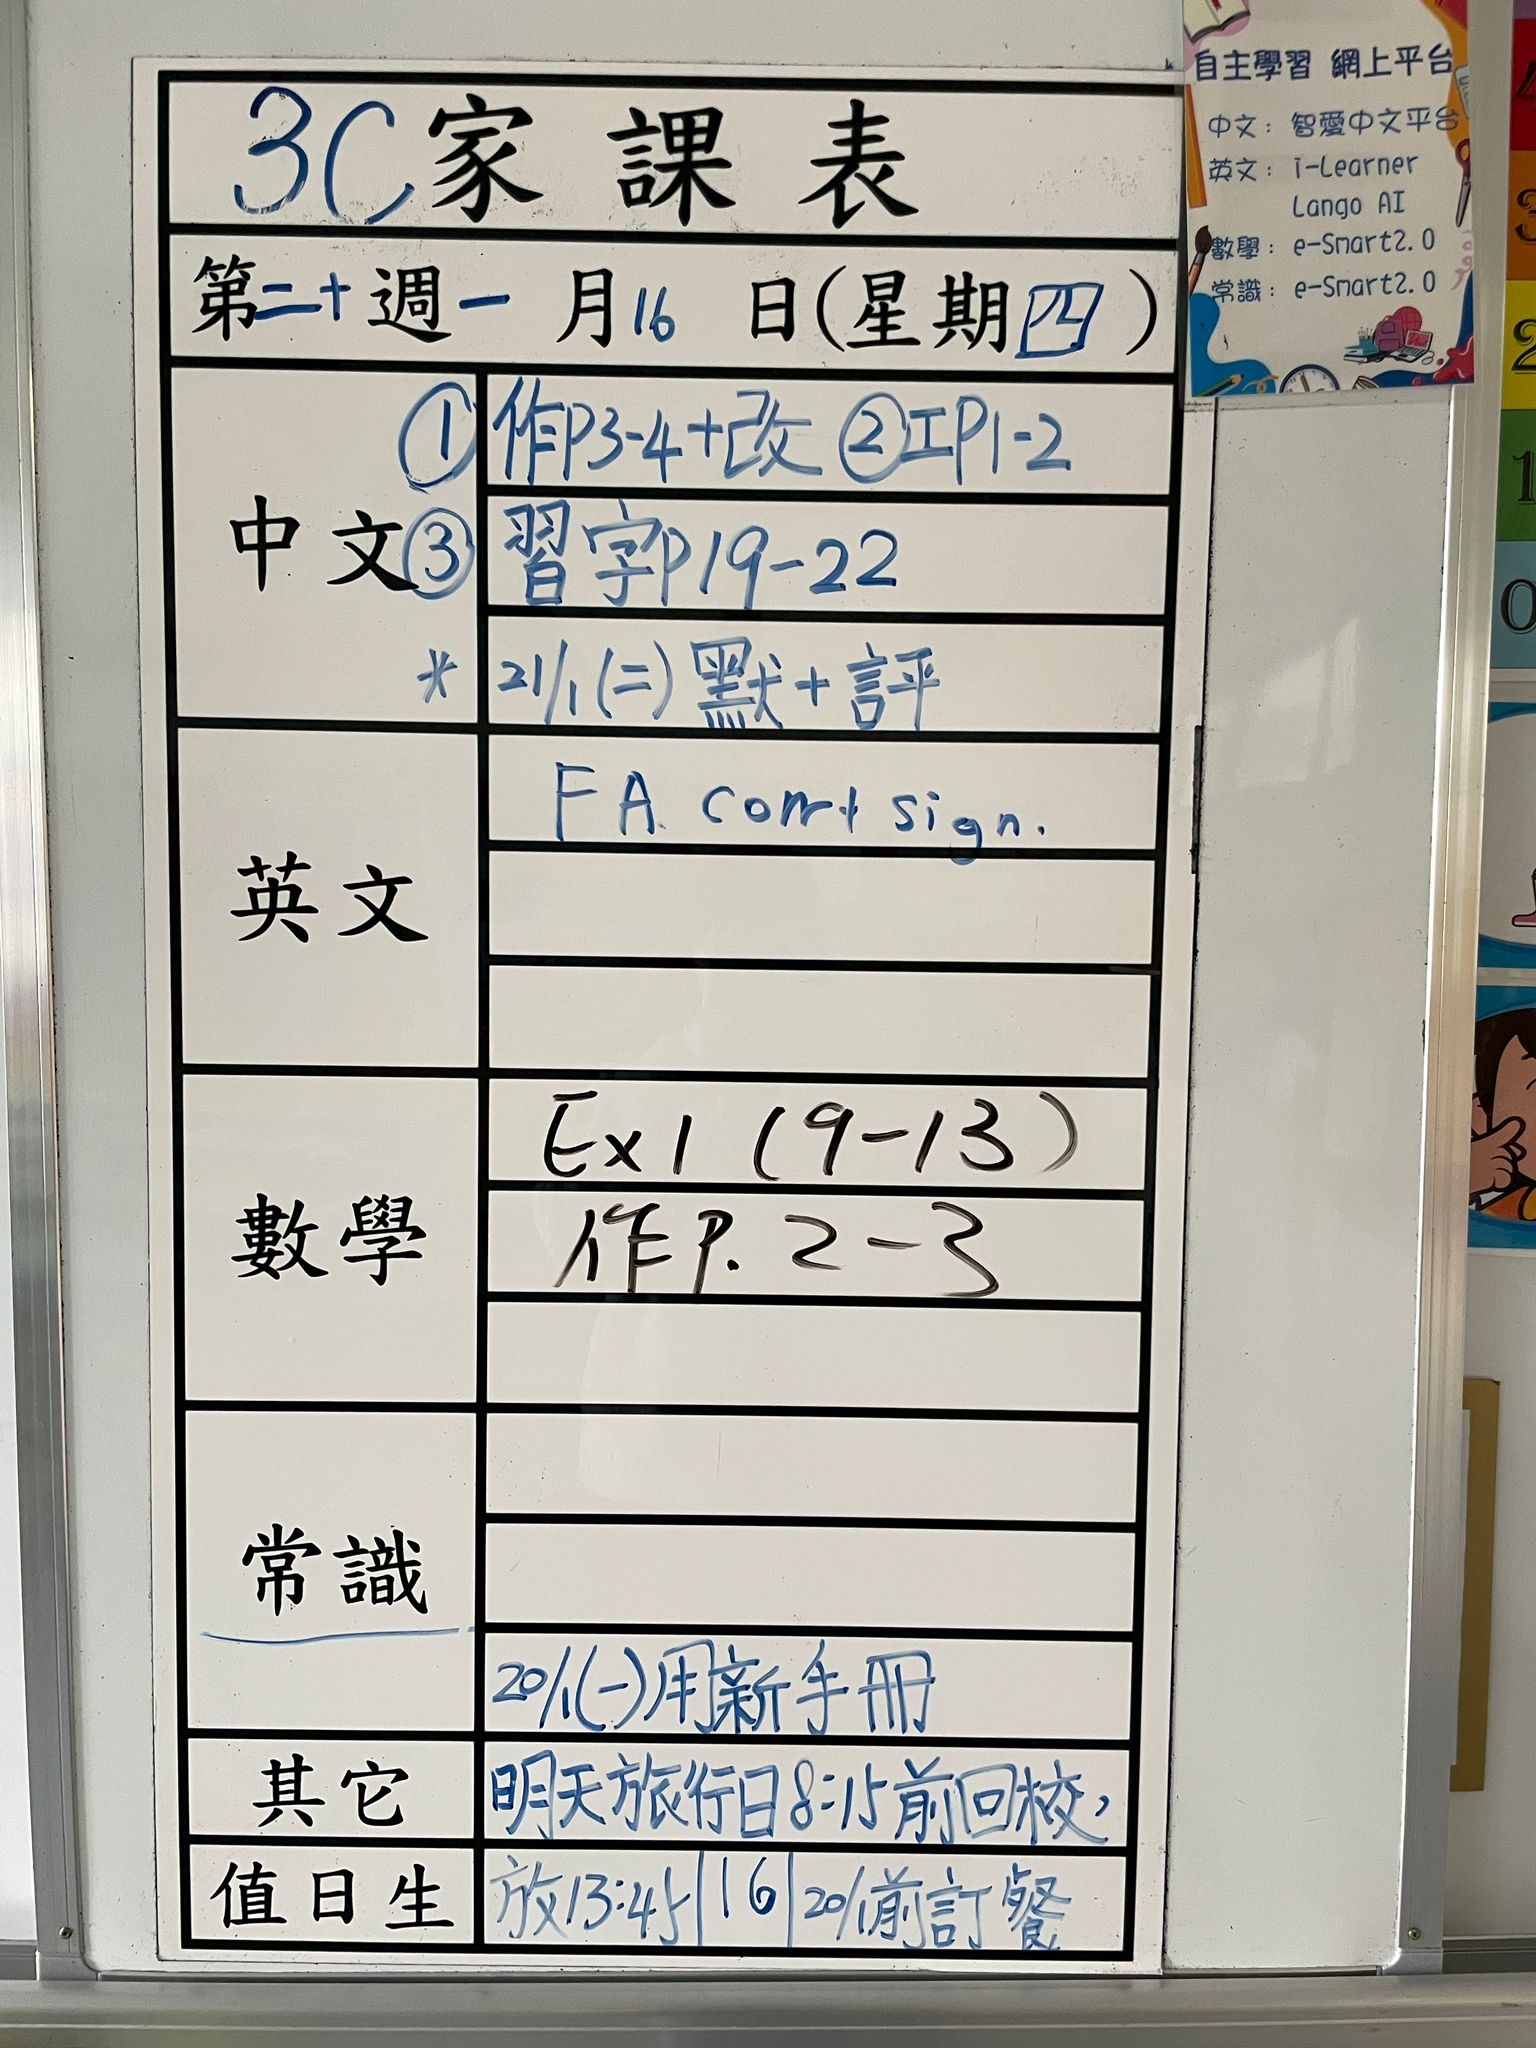 3C家課表
第二十週一月16日(星期四)
中文
①作P3-4+改 ②工P1-2
③習字P19-22
* 21/1(二)默+評
英文
FA corr+ sign.
數學
Ex1 (9-13)
作P. 2-3
常識
20/1(一)用新手冊
其它
明天旅行日8:15前回校,
值日生
放13:45|16|20/1前訂餐
自主學習 網上平台
中文: 智愛中文平台
英文: i-Learner
Lango AI
數學: e-Smart2.0
常識: e-Smart2.0
3
2
1
0